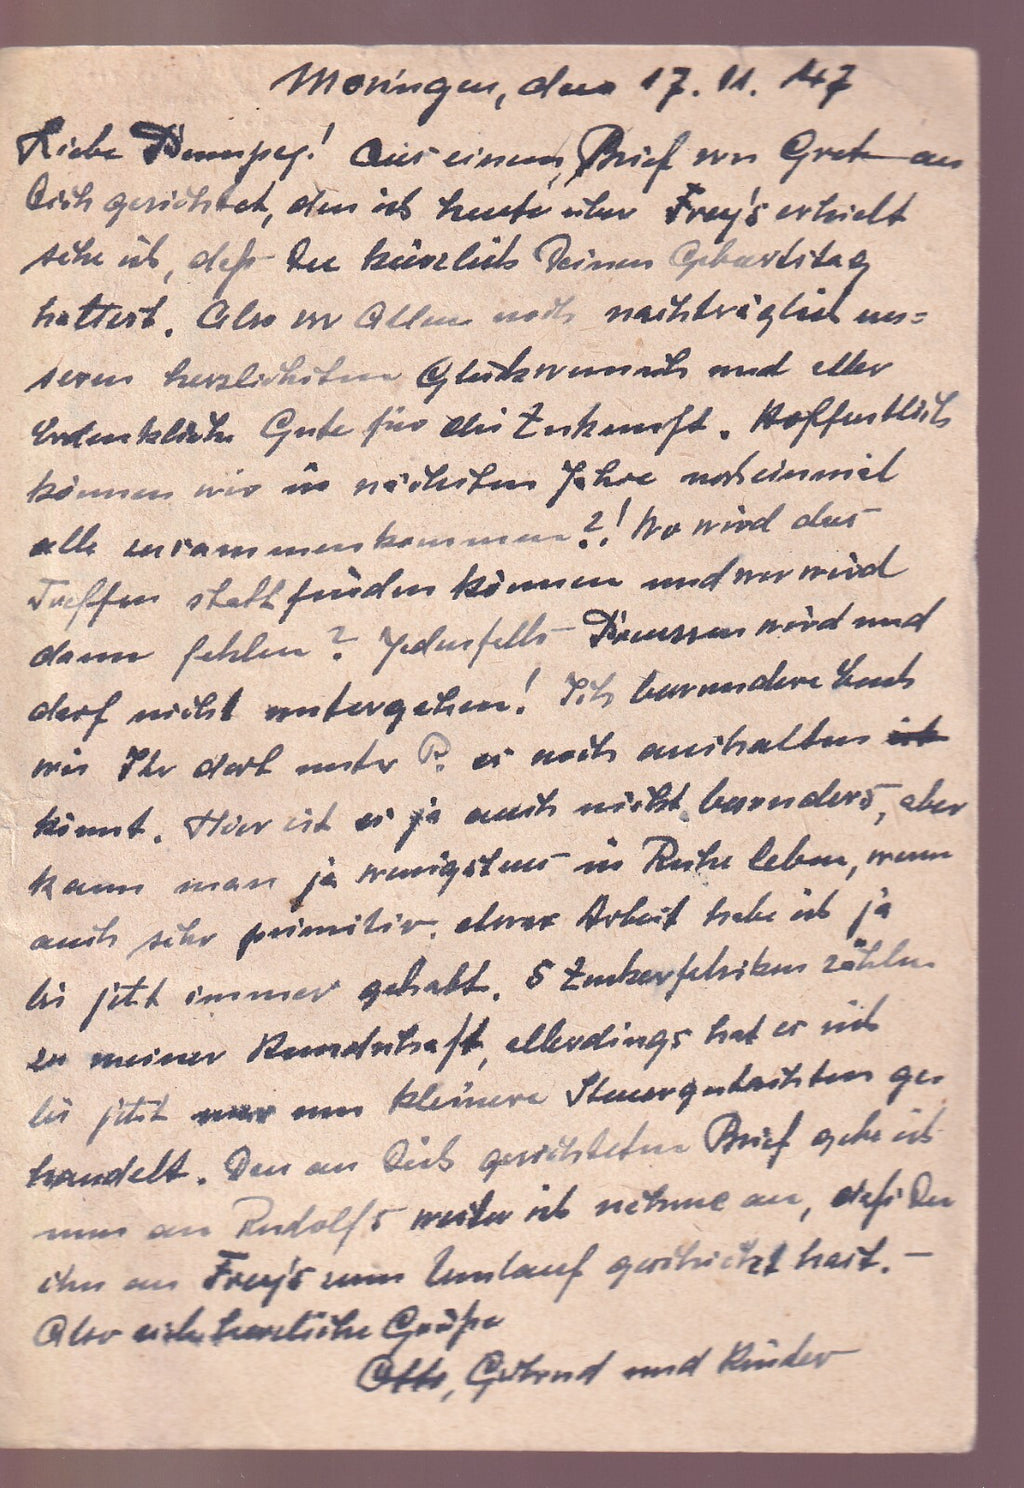 Moringen, den 17. 11. 47
Liebe! Aus einem Brief von Grete an
Dich gerichtet, den ich heute über Frey's erhielt
sehe ich, daß Du kürzlich Deinen Geburtstag
hattest. Also vor Allem noch nachträglich un=
seren herzlichsten Glückwunsch und alles
erdenkliche Gute für die Zukunft. Hoffentlich
können wir im nächsten Jahre noch einmal
alle zusammenkommen?! Wo wird das
Treffen stattfinden können und wer wird
dann fehlen? Jedenfalls Preussen wird und
darf nicht untergehen! Ich bewundere Euch
wie Ihr dort unter P. es noch aushalten
könnt. Hier ist es ja auch nicht besonders, aber
kann man ja wenigstens in Ruhe leben, wenn
auch sehr primitiv. etwas Arbeit habe ich ja
bis jetzt immer gehabt. 5 Zuckerfabriken zählen
zu meiner Kundschaft, allerdings hat es sich
bis jetzt nur um kleinere Steuergutachten ge-
handelt. Den an Dich gerichteten Brief gebe ich
nun an Rudolfs weiter ich nehme an, daß Du
ihn an Frey's zum Umlauf geschickt hast. —
Also herzliche Grüße
Otto, Gertrud und Kinder